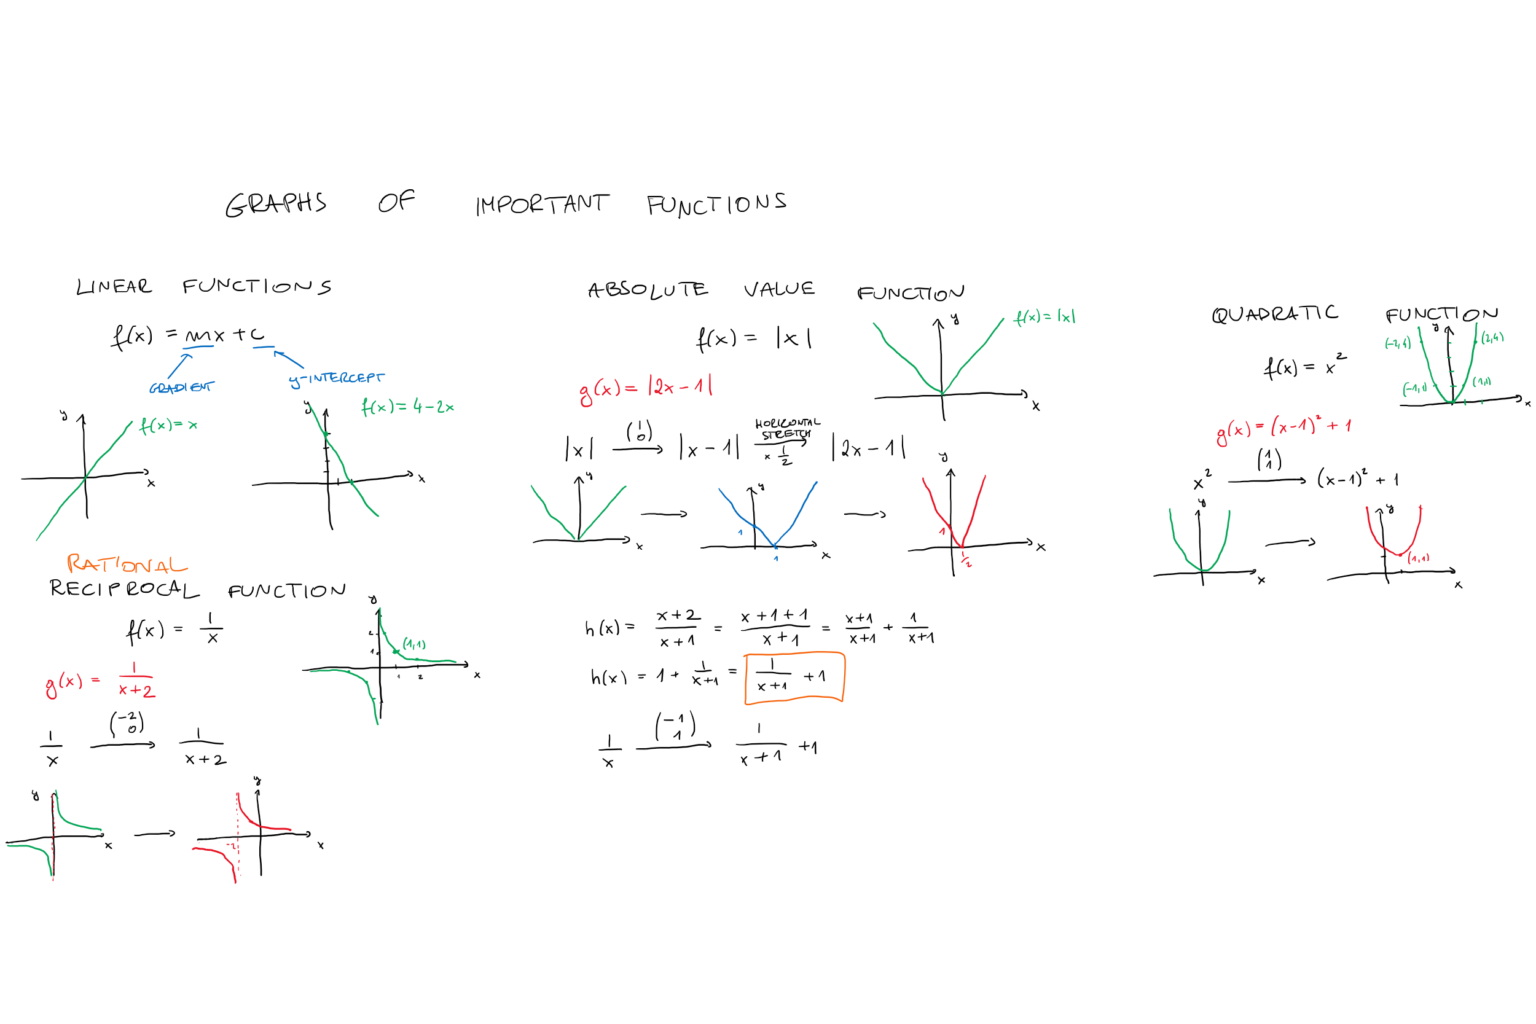 GRAPHS OF IMPORTANT FUNCTIONS
LINEAR FUNCTIONS
f(x) = mx + c
GRADIENT
y-INTERCEPT
y
f(x) = x
x
y
f(x) = 4 - 2x
x
RATIONAL
RECIPROCAL FUNCTION
f(x) = 1/x
y
2
1
(1,1)
1 2
x
g(x) = 1/(x+2)
1/x → (-2 0) 1/(x+2)
y
x
→
y
-2
x
ABSOLUTE VALUE FUNCTION
f(x) = |x|
y
f(x) = |x|
x
g(x) = |2x - 1|
|x| → (1 0) |x - 1| → HORIZONTAL STRETCH × 1/2 |2x - 1|
y
x
→
y
1
1
x
→
y
1
1/2
x
h(x) = (x+2)/(x+1) = (x+1+1)/(x+1) = (x+1)/(x+1) + 1/(x+1)
h(x) = 1 + 1/(x+1) = 1/(x+1) + 1
1/x → (-1 1) 1/(x+1) + 1
QUADRATIC FUNCTION
f(x) = x²
y
(-2,4)
(2,4)
(-1,1)
(1,1)
x
g(x) = (x-1)² + 1
x² → (1 1) (x-1)² + 1
y
x
→
y
(1,1)
x